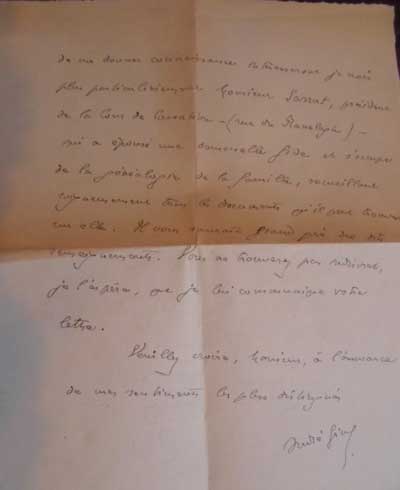 de me donner connaissance
plus particulièrement Monsieur Sarrut, président
de la Cour de Cassation – (rue du Ranelagh) –
qui a épousé une demoiselle Gide et s'occupe
de la généalogie de la famille, recueillant
soigneusement tous les documents qu'il peut trouver
sur elle. Il vous saurait grand gré de vos
renseignements. Vous ne trouverez pas indiscret,
je l'espère, que je lui communique votre
lettre.
Veuillez croire, Monsieur, à l'assurance
de mes sentiments les plus distingués
André Gide